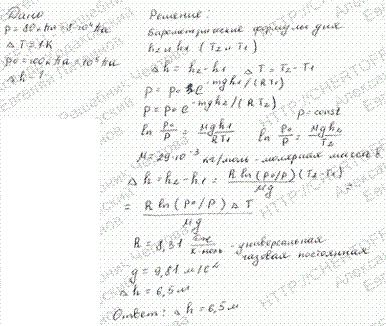 Дано
P = 80 кПа = 8·10⁴ Па
ΔT = 1К
P₀ = 100 кПа = 10⁵ Па
Δh - ?
Решение.
Барометрические формулы для
h₂ и h₁ (T₂ и T₁)
Δh = h₂ - h₁ ΔT = T₂ - T₁
P = P₀ e^-mgh₁/(RT₁)
P = P₀ e^-mgh₂/(RT₂)
P = const
ln P₀/P = Mgh₁/RT₁ ln P₀/P = Mgh₂/T₂
M = 29·10⁻³ кг/моль - молярная масса в
Δh = h₂ - h₁ = R ln(P₀/P)(T₂ - T₁)/Mg
= R ln(P₀/P) ΔT/Mg
R = 8,31 Дж/К·моль - универсальная
газовая постоянная
g = 9,81 м/с²
Δh = 6,5 м
Ответ: Δh = 6,5 м